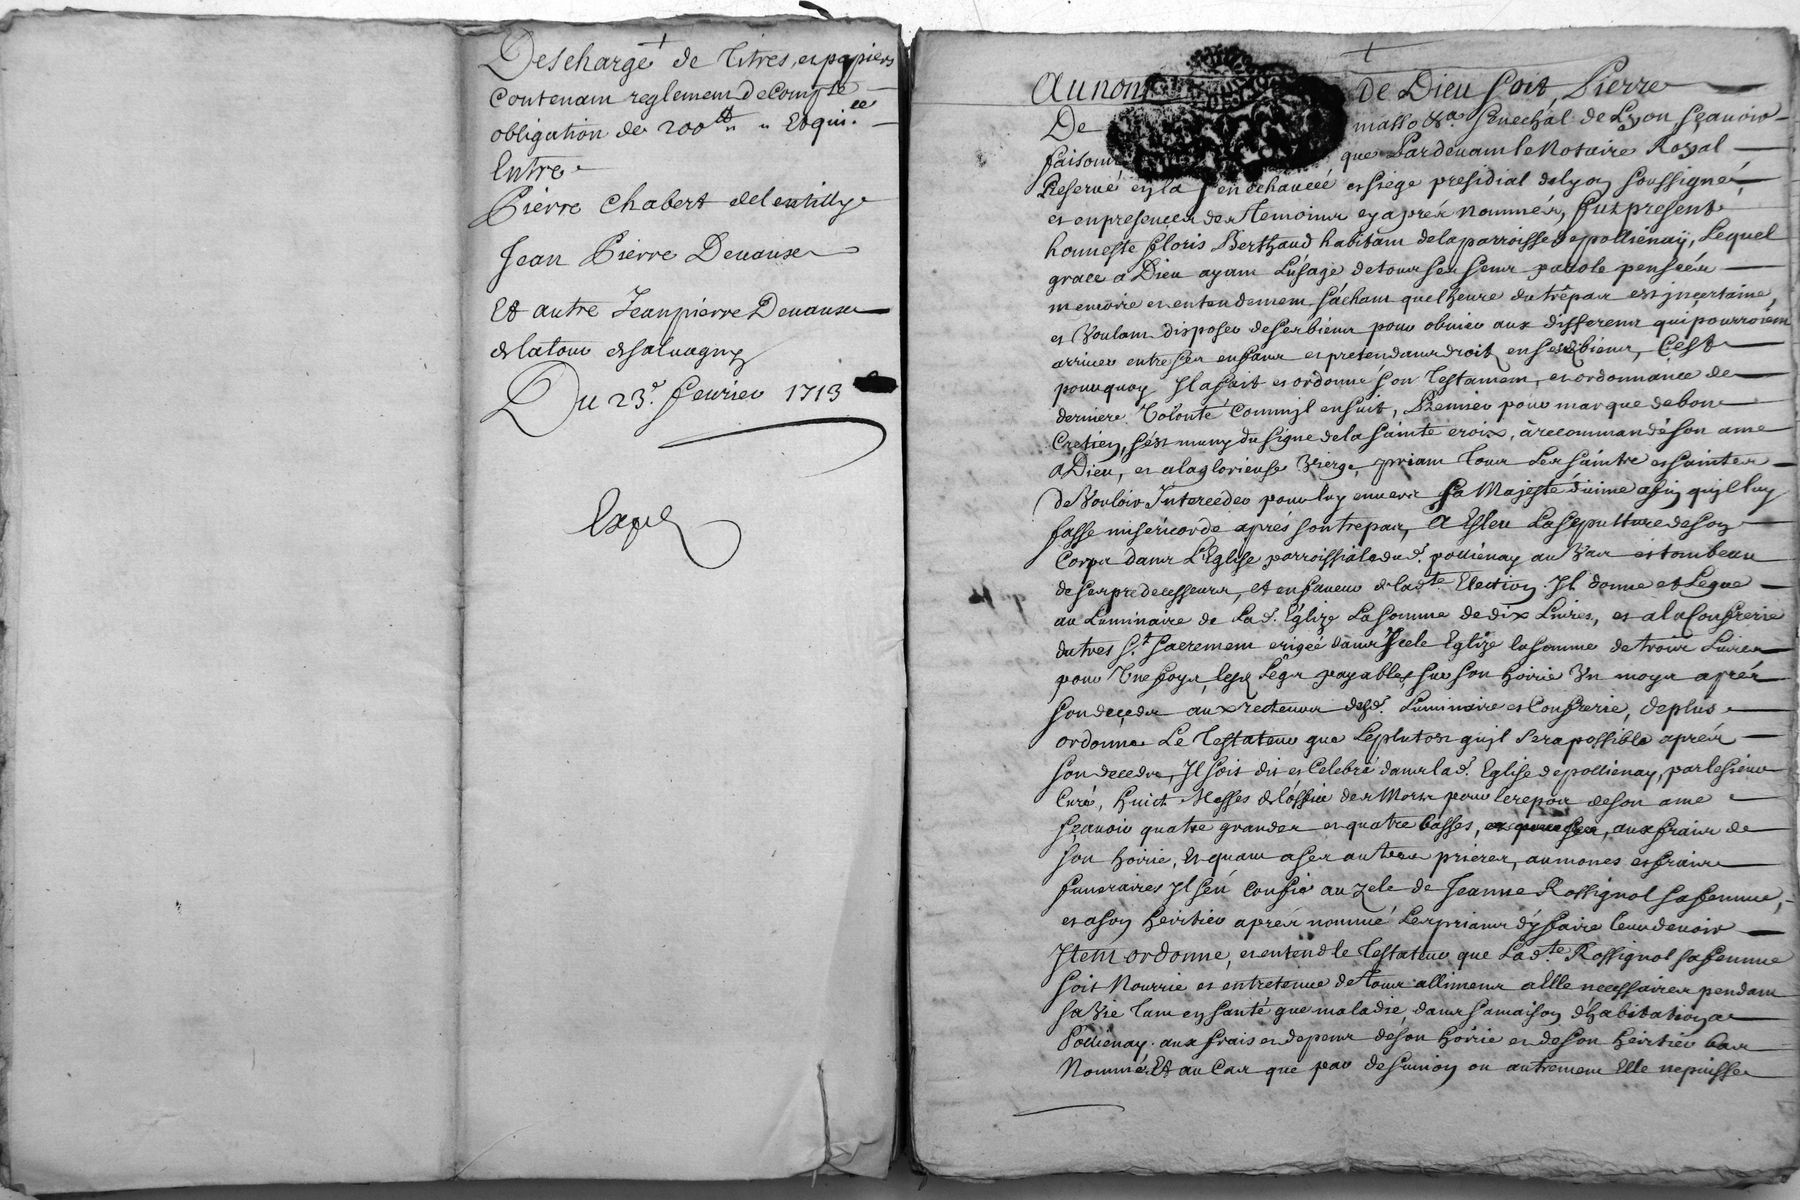 Descharge de Titres, et papiers
Contenant reglement de Compte
obligation de 200 tt " " Et qui.ce
Entre
Pierre Chabert de Lentilly
Jean Pierre Devaux
Et autre Jean pierre Devaux
de la tour de salvagny
Du 23.e fevrier 1713
Expé
Au nom de Dieu soit Pierre
De masso &a. Senechal de Lyon, sçavoir
faisons que Pardevant le Notaire Royal
Reservé en la senechaucée et siege presidial de lyon soussigné,
et en presence des Temoins cy aprés nommés, fut present
honneste floris Berthaud habitant de la parroisse de pollienay, Lequel
grace a Dieu ayant L'usage de tous ses sens parole pensées
memoire et entendement sachant que l'heure du trépas est jncertaine,
et Voulant disposer de ses biens pour obvier aux differens qui pourroient
arriver entre ses enfans et pretendans droit en sesd biens, C'est
pourquoy Jl a fait et ordonné son Testament, et ordonnance de
derniere Volonté comm'jl ensuit, Premier pour marque de bon
Cretien, s'est muny du signe de la sainte croix, à recommandé son ame
a Dieu, et a la glorieuse Vierge, priant Tous Les saints et saintes
de Vouloir Interceder pour luy envers sa Majesté divine afin qu'jl luy
fasse misericorde aprés son trepas, A Esleu La sepulture de son
Corps dans L'Eglise parroissiale dud. pollienay au Vas et tombeau
de ses predecesseurs, et en faveur de lad.te Election Jl donne et Legue
au Luminaire de Lad. Eglize La somme de dix Livres, et a la Confrerie
du tres S.t Sacrement erigée dans Jcele Eglize la somme de trois Livres
pour Vne foys, lesd Legs payables sur son hoirie Vn moys aprés
son deceds aux recteurs desd. Luminaire et Confrerie, de plus
ordonne Le Testateur que Le plutost qu'jl sera possible aprés
son deceds, Jl soit dit et Celebré dans lad. Eglise de pollienay, par le sieur
Curé, huict Messes de l'office des Morts pour le repos de son ame
sçavoir quatre grandes et quatre basses, aux frais de
son hoirie, Et quant a ses autres prieres, aumones et frais
funeraires Jl s'en confie au zele de Jeanne Rossignol sa femme,
et a son heritier aprés nommé Les priant d'y faire leur devoir
Jtem ordonne, et entend le Testateur que Lad.te Rossignol sa femme
soit Nourrie et entretenue de tous allimens a Elle necessaires pendant
sa Vie Tant en santé que maladie, dans sa maison d'habitation a
Pollienay aux frais et depens de son hoirie et de son heritier bas
Nommé Et au Cas que par desunion ou autrement Elle ne puisse